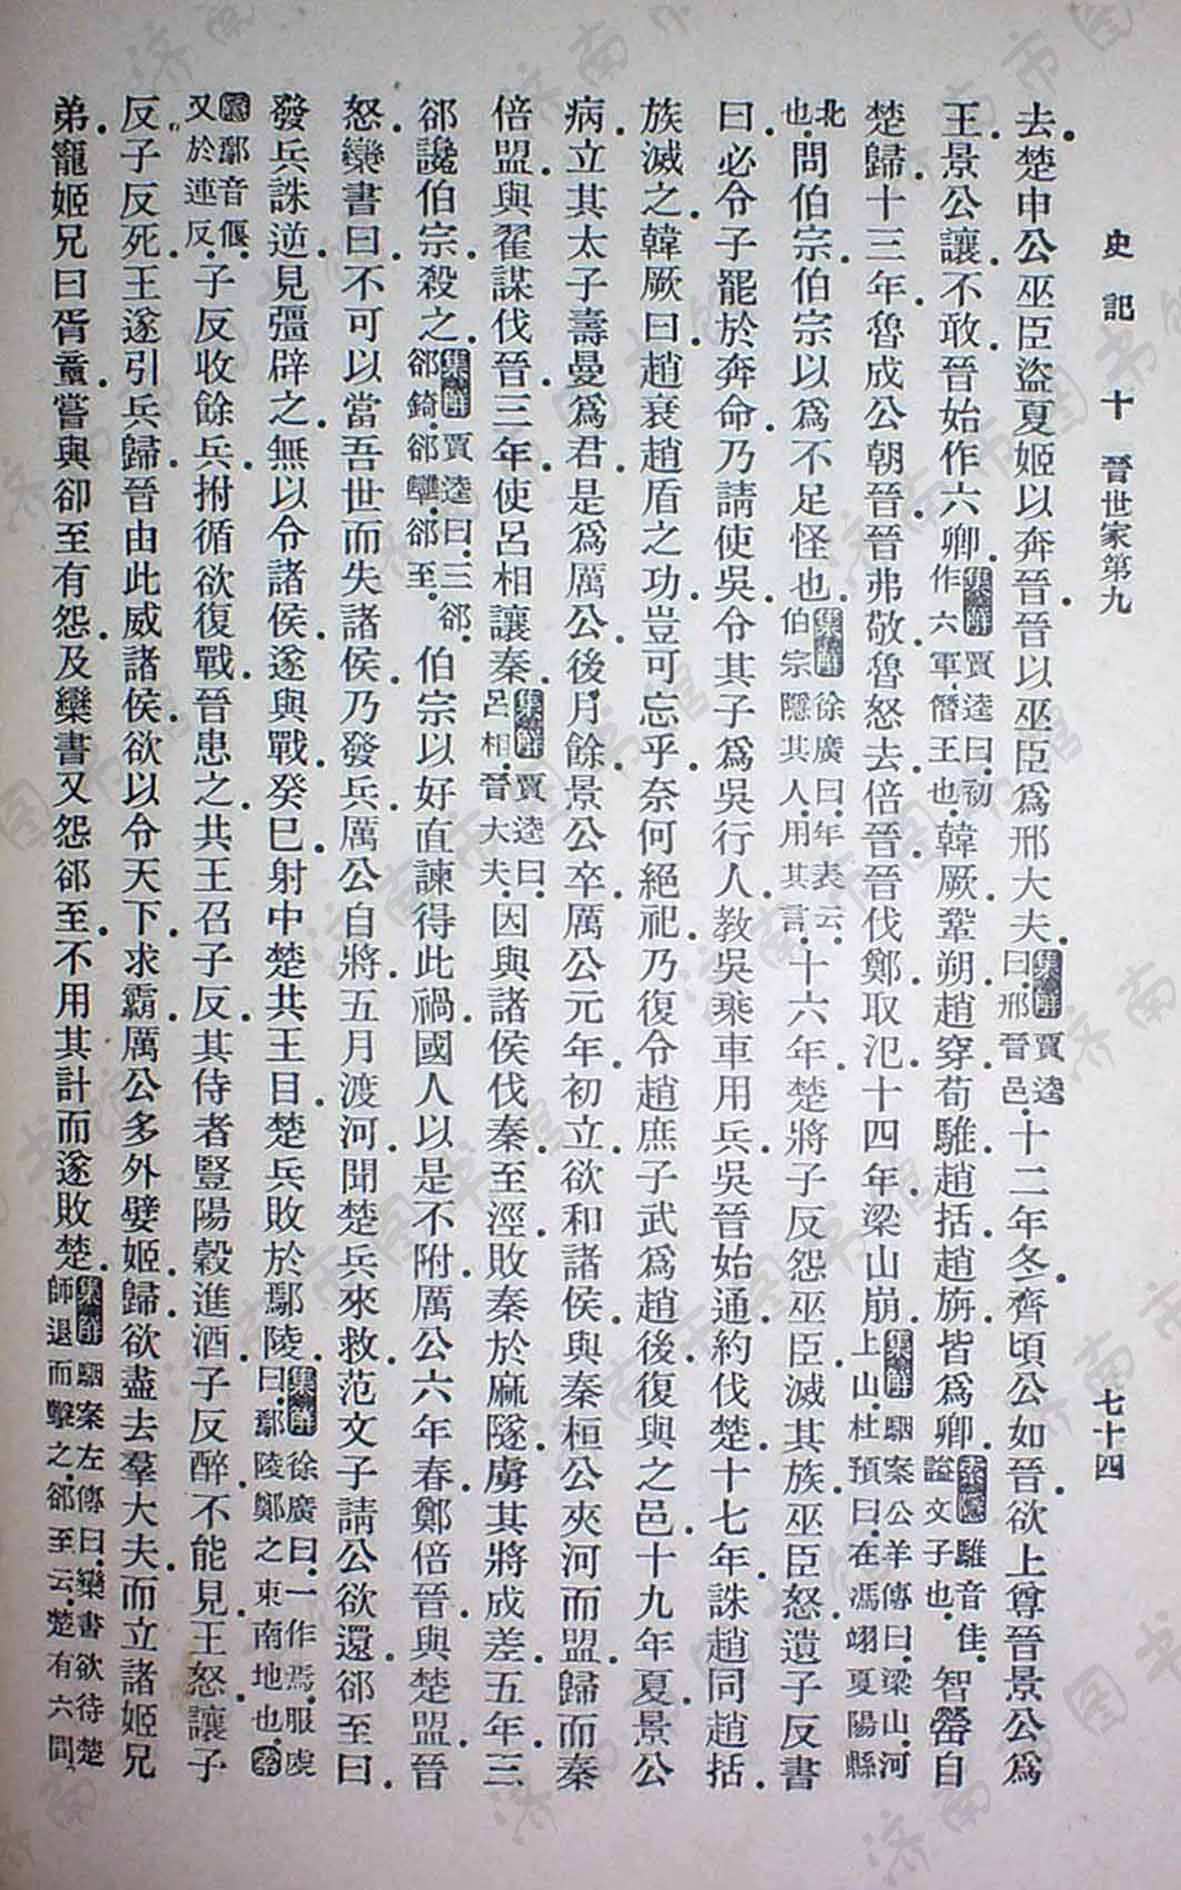 史記 十 晉世家第九 七十四
去。楚申公巫臣盜夏姬以奔晉。晉以巫臣爲邢大夫。集解賈逵曰。邢晉邑。十二年冬。齊頃公如晉。欲上尊晉景公爲
王。景公讓不敢。晉始作六卿。集解賈逵曰。初作六軍。僭王也。韓厥鞏朔。趙穿。荀騅。趙括。趙旃皆爲卿。索隱騅音隹。謚文子也。智罃自
楚歸。十三年。魯成公朝晉。晉弗敬。魯怒去。倍晉。晉伐鄭。取氾。十四年。梁山崩。集解駰案公羊傳曰。梁山。河上山。杜預曰。在馮翊夏陽縣
北也。問伯宗。伯宗以爲不足怪也。集解徐廣曰。年表云。伯宗隱其人。用其言。十六年。楚將子反怨巫臣。滅其族。巫臣怒。遺子反書
曰。必令子罷於奔命。乃請使吳。令其子爲吳行人。教吳乘車用兵。吳晉始通。約伐楚。十七年。誅趙同趙括。
族滅之。韓厥曰。趙衰趙盾之功。豈可忘乎。奈何絕祀。乃復令趙庶子武爲趙後。復與之邑。十九年夏。景公
病。立其太子壽曼爲君。是爲厲公。後月餘。景公卒。厲公元年。初立。欲和諸侯。與秦桓公夾河而盟。歸而秦
倍盟。與翟謀伐晉。三年。使呂相讓秦。集解賈逵曰。呂相。晉大夫。因與諸侯伐秦。至涇。敗秦於麻隧。虜其將成差。五年。三
郤讒伯宗。殺之。集解賈逵曰。三郤。郤錡。郤犨。郤至。伯宗以好直諫得此禍。國人以是不附。厲公六年春。鄭倍晉。與楚盟。晉
怒。欒書曰。不可以當吾世而失諸侯。乃發兵。厲公自將。五月渡河。聞楚兵來救。范文子請公欲還。郤至曰。
發兵誅逆。見彊辟之。無以令諸侯。遂與戰。癸巳。射中楚共王目。楚兵敗於鄢陵。集解徐廣曰。一作焉。服虔曰。鄢陵鄭之東南地也。索
隱鄢音偃。又於連反。子反收餘兵。拊循欲復戰。晉患之。共王召子反。其侍者豎陽穀進酒。子反醉。不能見。王怒。讓子
反。子反死。王遂引兵歸。晉由此威諸侯。欲以令天下。求霸。厲公多外嬖姬。歸。欲盡去羣大夫。而立諸姬兄
弟。寵姬兄曰胥童。嘗與郤至有怨。及欒書又怨郤至。不用其計而遂敗楚。集解駰案左傳曰。欒書欲待楚師退而擊之。郤至云。楚有六間。